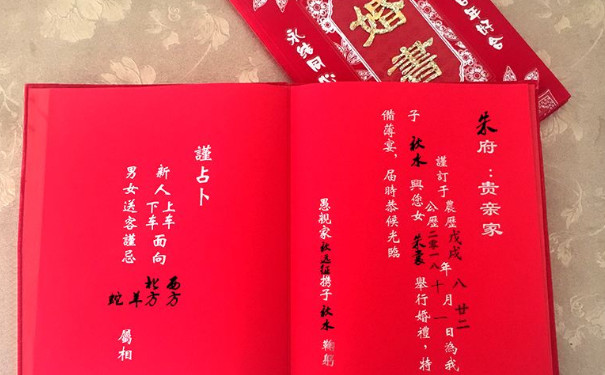 婚書
永結同心
朱府：贵亲家
謹訂于農歷戊戌年八月廿二日為我
公歷二零一八十一
子秋水與您女朱舉行婚禮，特
備薄宴，届時恭候光臨
愚親家秋携子秋水鞠躬
謹占卜
新人上车面向西方
下车北方
男女送客謹忌羊蛇屬相